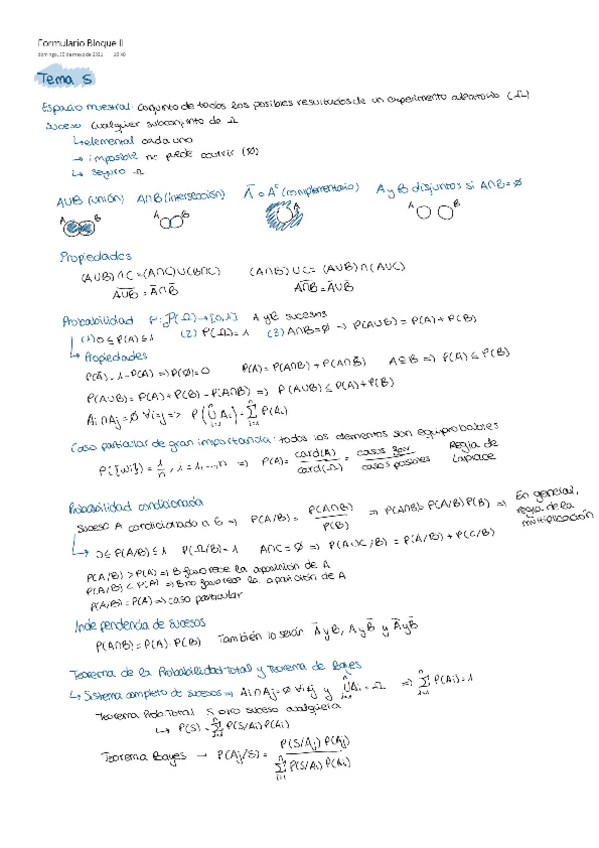 Formulario Bloque II
Tema 5
Espacio muestral: Conjunto de todos los posibles resultados de un experimento aleatorio (Ω)
Suceso Cualquier subconjunto de Ω
↳ elemental cada uno
→ imposible no puede ocurrir (∅)
↳ seguro Ω
A∪B (unión) A∩B (intersección) Ā o Aᶜ (complementario) A y B disjuntos si A∩B = ∅
A B A B A A B
Propiedades
(A∪B)∩C = (A∩C)∪(B∩C) (A∩B)∪C = (A∪B)∩(A∪C)
A̅∪̅B̅ = A̅∩B̅ A̅∩̅B̅ = A̅∪B̅
Probabilidad P: P(Ω)→[0,1] A y B sucesos
(1) 0 ≤ P(A) ≤ 1 (2) P(Ω) = 1 (3) A∩B = ∅ → P(A∪B) = P(A) + P(B)
↳ Propiedades
P(A̅) = 1 - P(A) ⇒ P(∅) = 0 P(A) = P(A∩B) + P(A∩B̅) A⊆B ⇒ P(A) ≤ P(B)
P(A∪B) = P(A) + P(B) - P(A∩B) ⇒ P(A∪B) ≤ P(A) + P(B)
Ai∩Aj = ∅ ∀i≠j ⇒ P(⋃ⁿᵢ₌₁ Ai) = Σⁿᵢ₌₁ P(Ai)
Caso particular de gran importancia: todos los elementos son equiprobables
P({wi}) = 1/n, i = 1, ..., n ⇒ P(A) = card(A)/card(Ω) = casos fav/casos posibles Regla de Laplace
Probabilidad condicionada
Suceso A condicionado a B ⇒ P(A/B) = P(A∩B)/P(B) ⇒ P(A∩B) = P(A/B) P(B) ⇒ En general, regla de la multiplicación
↳ 0 ≤ P(A/B) ≤ 1 P(Ω/B) = 1 A∩C = ∅ ⇒ P(A∪C/B) = P(A/B) + P(C/B)
P(A/B) > P(A) ⇒ B favorece la aparición de A
P(A/B) < P(A) ⇒ B no favorece la aparición de A
P(A/B) = P(A) ⇒ caso particular
Independencia de sucesos
P(A∩B) = P(A)·P(B) También lo serán A̅ y B, A y B̅ y A̅ y B̅
Teorema de la Probabilidad Total y Teorema de Bayes
↳ Sistema completo de sucesos ⇒ Ai∩Aj = ∅ ∀i≠j y ⋃ⁿᵢ₌₁ Ai = Ω ⇒ Σⁿᵢ₌₁ P(Ai) = 1
Teorema Prob. Total S otro suceso cualquiera
↳ P(S) = Σⁿᵢ₌₁ P(S/Ai) P(Ai)
Teorema Bayes → P(Aj/S) = P(S/Aj) P(Aj) / Σⁿᵢ₌₁ P(S/Ai) P(Ai)